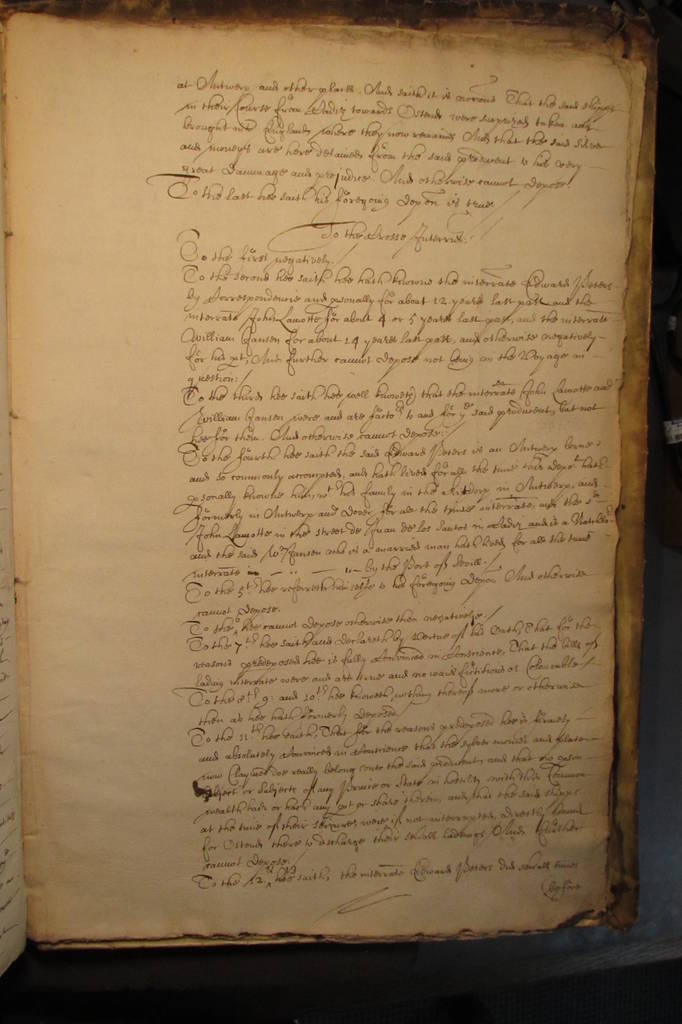 at Antwerp and other places. And saith it is notorious That the said shipps
in their Course from Cadiz towards Ostend were surprized taken and
brought into England where they now remaine And that the said silver
and moneys are here detained from the said producent to his very
great dammage and prejudice. And otherwise cannot depose.
To the last hee saith his foregoing depon is true
To the Crosse Interries.
To the first negatively.
To the second hee saith hee hath knowne the interrate Edward Peters
by Correspondencie and psonally for about 12 yeares last past and the
interrate John Lamotte for about 4 or 5 yeares last past, and the interrate
William Jansen for about 14 yeares last past, and otherwise negatively
for his pt, And further cannot depose not being on the Voyage in
question.
To the third hee saith hee well knoweth that the interrate John Lamotte and
William Jansen were and are factors to and for ye said producent, but not
hee for them. And otherwise cannot depose.
To the fourth hee saith the said Edward Peters is an Antwerp borne
and so commonly accompted, and hath lived for all the time this depot hath
psonally knowne him wth his family in the in Antwerp, and
formerly in Antwerp and Dover for all the time interrate, and the sd
John Lamotte in the street de Juan de los Santos in Cadiz and is a
and the said Wm Jansen who is a married man hath lived for all the time
interrate in by the Port of Sevill.
To the 5th hee referreth him selfe to his foregoing depon And otherwise
cannot depose.
To the 6 hee cannot depose otherwise then negatively.
To the 7th hee saith and declareth by vertue of his Oath, That for the
reasons predeposed hee is fully Convinced in Conscience, That the bills of
lading interrate were and are true and no waies fictitious or Colourable
To the 8th 9: and 10th hee knoweth nothing thereof more or otherwise
then as hee hath formerly deposed
To the 11th hee saith, That for the reasons predeposed hee is firmely
and absolutely Convinced in Conscience that the sylver monies and plate
now Claymed doe really belong unto the said producent, and that no pson
subject or subjects of any Prince or State in hostility with this Common
wealth hath or had any pt or share therein, and that the said shipps
at the time of their seizure were if not interrupted, directly bound
for Ostend there to discharge their severall ladeings And further
cannot depose.
To the 12th hee saith, the interrate Edward Peters did severall times
before